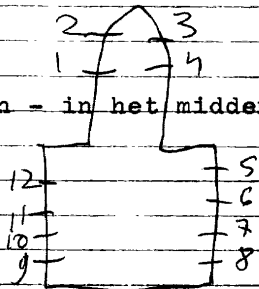 2 3
1 4
n - in het midden
12 5
11 6
10 7
9 8